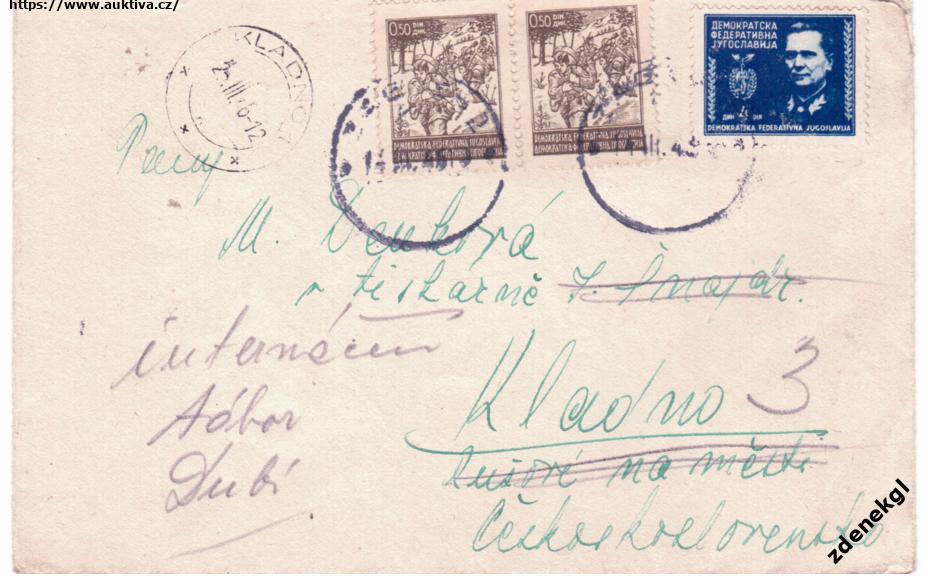 https://www.auktiva.cz/
KLADNO 1
0.50 DIN. ДИН.
0.50 DIN. ДИН.
ДЕМОКРАТСКА
ФЕДЕРАТИВНА
ЈУГОСЛАВИЈА
ДИН 4 DIN
DEMOKRATSKA FEDERATIVNA JUGOSLAVIJA
DEMOKRATSKA FEDERATIVNA JUGOSLAVIJA
DEMOKRATSKA FEDERATIVNA JUGOSLAVIJA
M. Denková
v tiskárně J. Šnajdr.
internační
tábor
Dubí
Kladno 3
na městě
Československo
zdenekgl